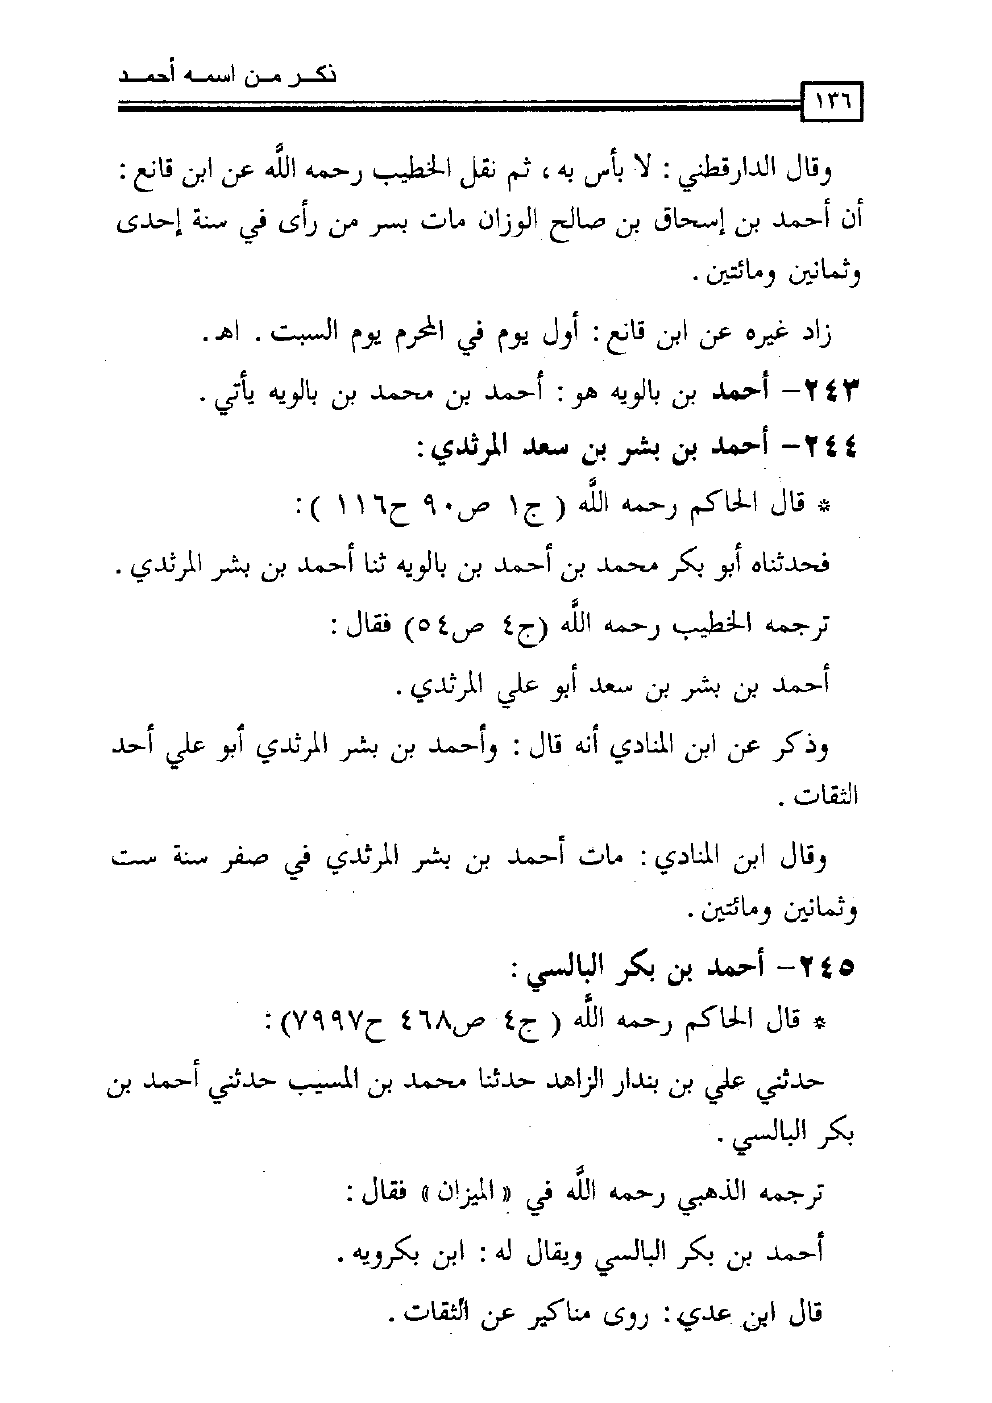 ذكر من اسمه أحمد
١٣٦
وقال الدارقطني : لا بأس به ، ثم نقل الخطيب رحمه الله عن ابن قانع :
أن أحمد بن إسحاق بن صالح الوزان مات بسر من رأى في سنة إحدى
وثمانين ومائتين .
زاد غيره عن ابن قانع : أول يوم في المحرم يوم السبت . اهـ .
٢٤٣- أحمد بن بالويه هو : أحمد بن محمد بن بالويه يأتي .
٢٤٤- أحمد بن بشر بن سعد المرثدي :
* قال الحاكم رحمه الله ( ج١ ص٩٠ ح١١٦ ) :
فحدثناه أبو بكر محمد بن أحمد بن بالويه ثنا أحمد بن بشر المرثدي .
ترجمه الخطيب رحمه الله (ج٤ ص٥٤) فقال :
أحمد بن بشر بن سعد أبو علي المرثدي .
وذكر عن ابن المنادي أنه قال : وأحمد بن بشر المرثدي أبو علي أحد
الثقات .
وقال ابن المنادي : مات أحمد بن بشر المرثدي في صفر سنة ست
وثمانين ومائتين .
٢٤٥- أحمد بن بكر البالسي :
* قال الحاكم رحمه الله ( ج٤ ص٤٦٨ ح٧٩٩٧) :
حدثني علي بن بندار الزاهد حدثنا محمد بن المسيب حدثني أحمد بن
بكر البالسي .
ترجمه الذهبي رحمه الله في « الميزان » فقال :
أحمد بن بكر البالسي ويقال له : ابن بكرويه .
قال ابن عدي : روى مناكير عن الثقات .